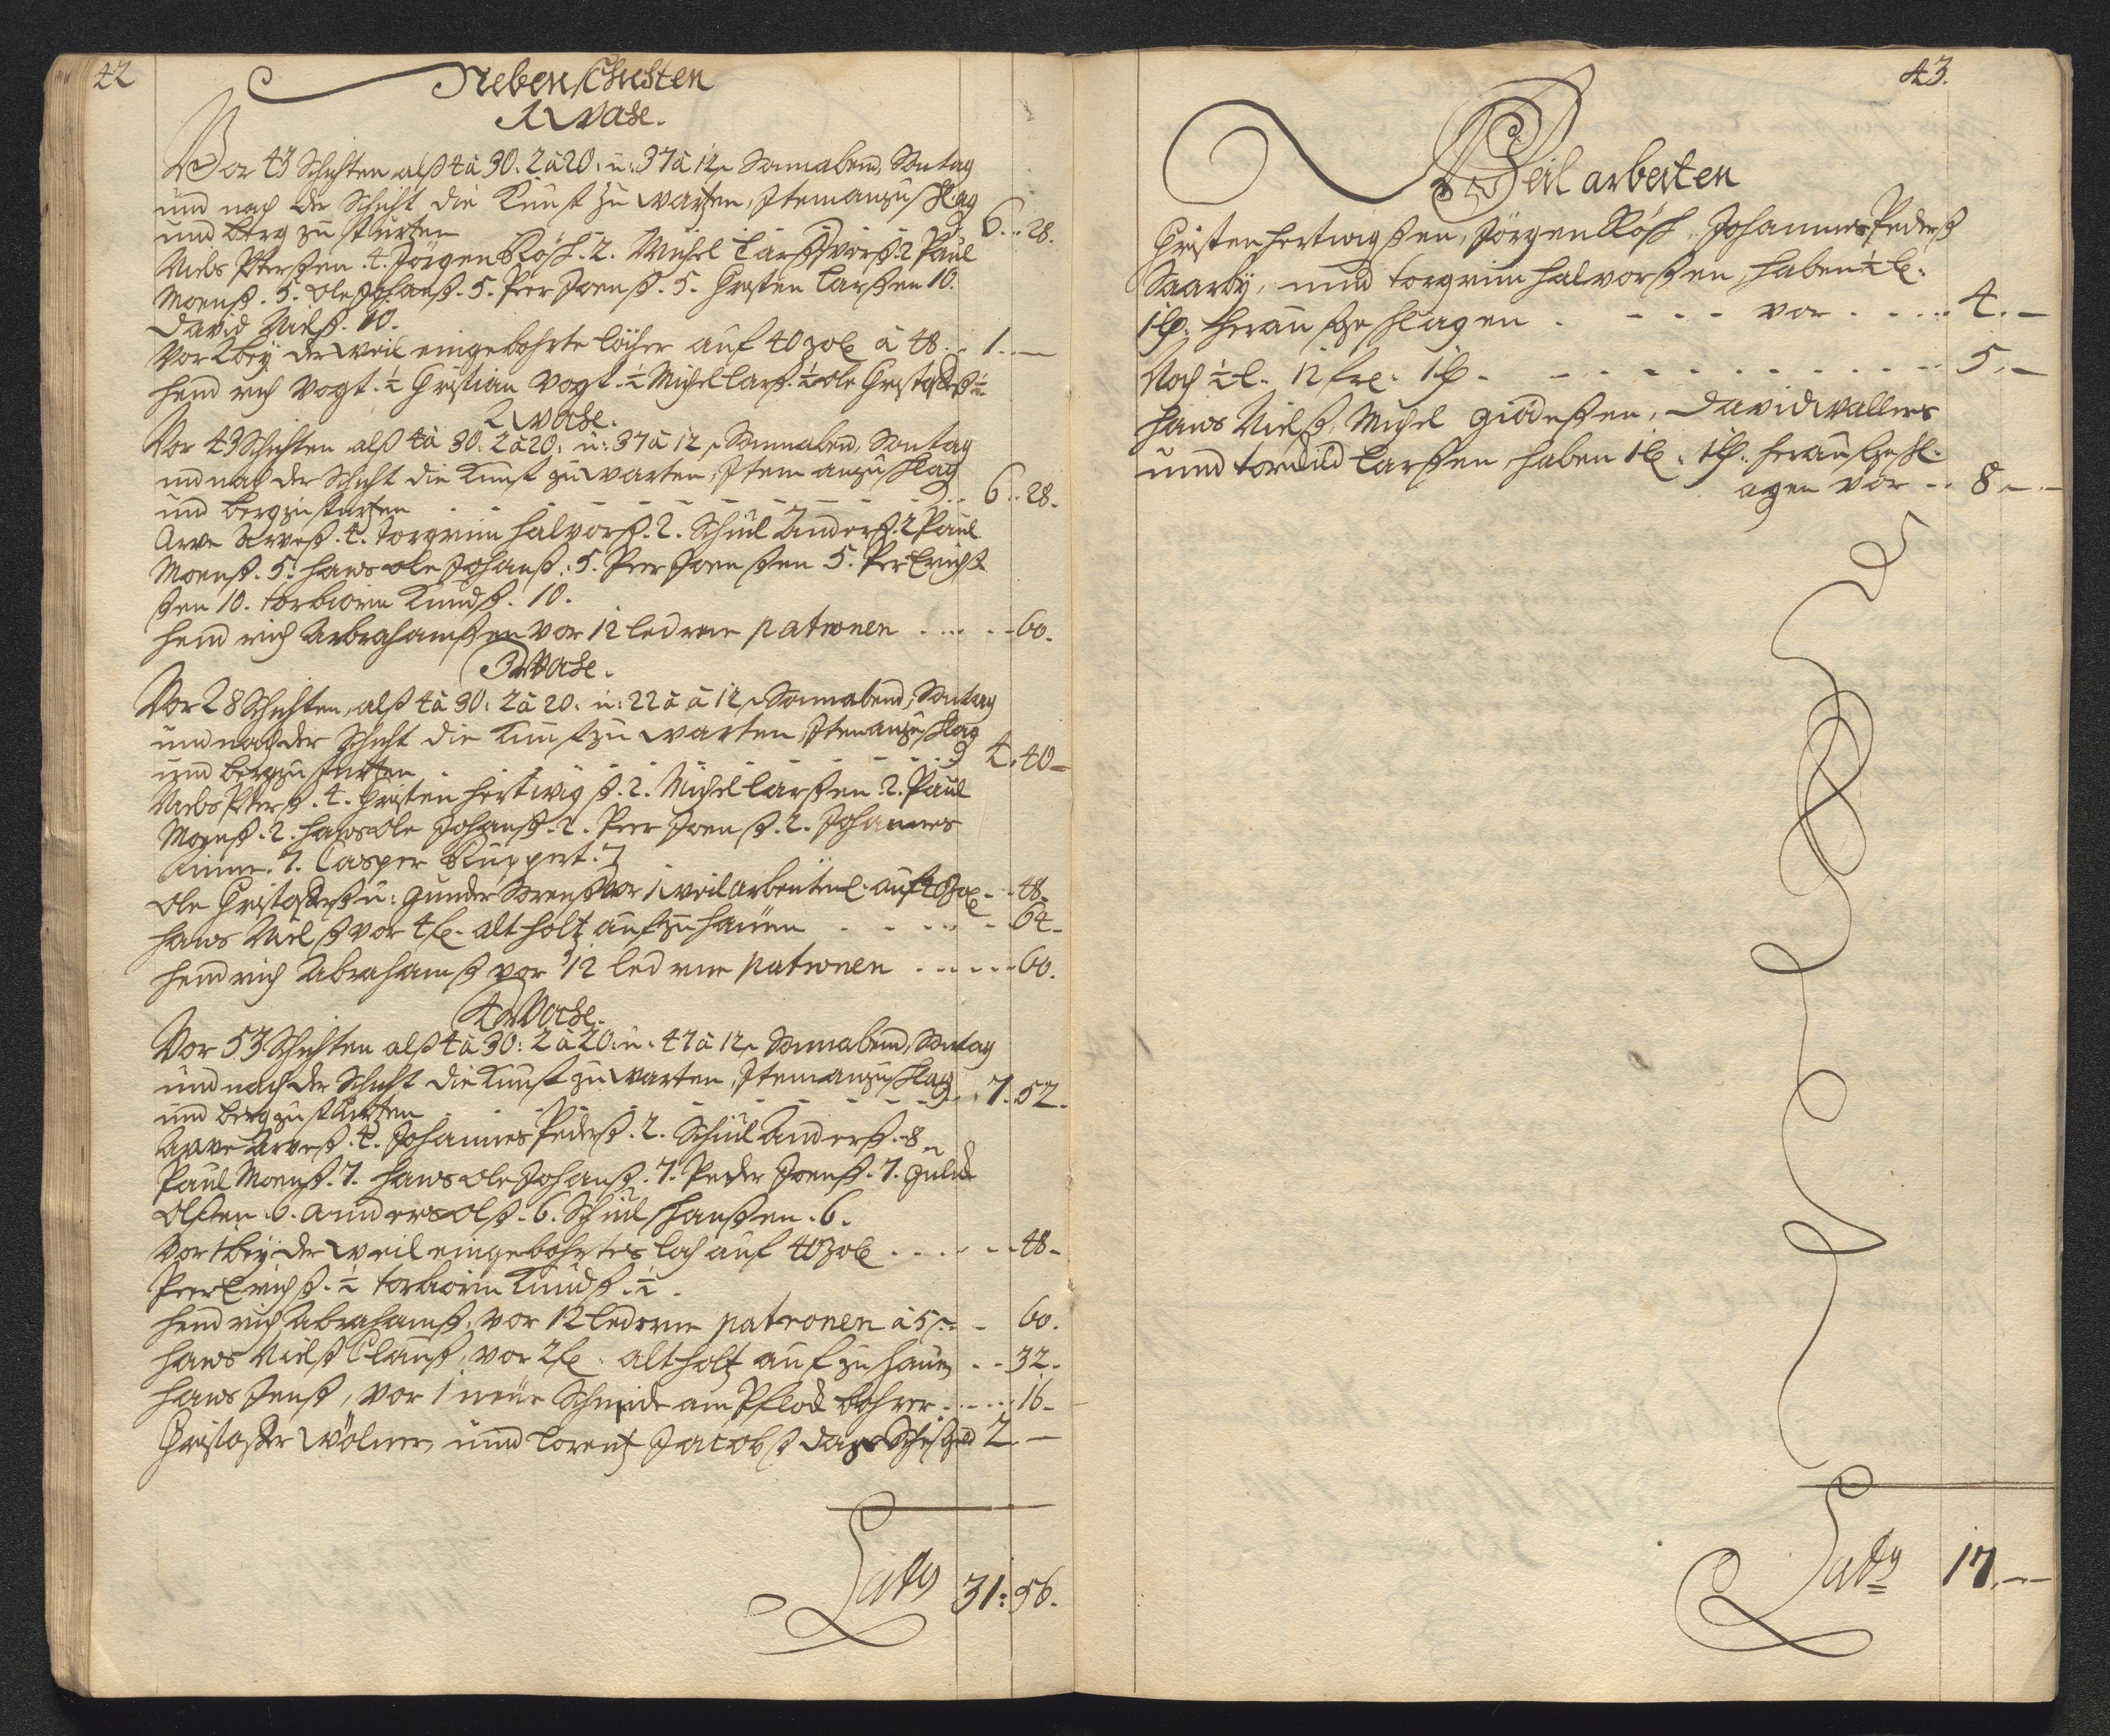 42
Nebenschichten
1 Woche.
Vor 43 Schichten alß 4 à 30. 2 à 20. u: 37 à 12 ß Sonnabend, Sontag
und nach der Schicht die Kunst zu warten, Item anzuschlag
und Berg zu sturtzen 6.. 28.
Niels Peterßen. 4. Jörgen Röß. 2. Michel Larß 2 Paul
Monß. 5. Ole Johanß. 5. Peer Joenß. 5. Christen Larßen 10.
David Nielß. 10.
Vor 2 bey der weil eingebohrte löcher auf 40 Zoll à 48. 1. —
Hendrich Vogt. ½ Christian Vogt. ½ Michel Larß. ½ Ole Christophß ½
2 Woche.
Vor 43 Schichten alß 4 à 30. 2 à 20. u: 37 à 12 ß Sonnabend, Sontag
und nach der Schicht die Kunst zu warten, Item anzuschlag
und berg zu sturtzen 6.. 28.
Arve Arveß. 4. Torgrim Halvorß. 2. Schiul Anderß. 2 Paul
Monß. 5. Hans Ole Johanß. 5. Peer Joenßen 5. Peer Erichß
ßen 10. Torbiörn Knudß. 10.
Hendrich Abrahamßen vor 12 lederne patronen 60.
3 Woche.
Vor 28 Schichten, alß 4 à 30. 2 à 20. u: 22 à à 12 ß Sonnabend, Sontag
und nach der Schicht die Kunst zu warten, Item anzuschlag
und berg zu sturtzen 4. 40
Niels Peterß. 4. Christen Hertwigß. 2. Michel Larßen 2. Paul
Monß. 2. Hans Ole Johanß. 2. Peer Joenß. 2. Johannes
7. Casper Ruppert. 7
Ole Christophß u: Gunder Sörenß vor 1 weilarbeit auf 40 Zoll 48.
Hans Nielß vor 4 alt holtz aufzuhauen 64.
Hendrich Abrahamß vor 12 lederne patronen 60.
4 Woche.
Vor 53 Schichten alß 4 à 30: 2 à 20. u. 47 à 12 ß Sonnabend, Sontag
und nach der Schicht die Kunst zu warten, Item anzuschlag
und berg zu sturtzen 7. 52.
Arve Arveß. 4. Johannes Pederß. 2. Schiul Anderß. 8
Paul Monß. 7. Hans Ole Johanß. 7. Peder Joenß. 7.
Olßen. 6. Anders Olß. 6. Schiul Hanßen. 6.
Vor 1 bey der weil eingebohrtes loch auf 40 Zoll 48.
Peer Erichß. ½ Torbiörn Knudß. ½.
Hendrich Abrahamß. vor 12 lederne patronen à 5 ß 60.
Hans Nielß Clauß, vor 2 alt holtz aufzuhauen 32.
Hans Jenß, vor 1 neue Schneide am Pflock bohrer 16
Christopher Wölner, und Lorentz Jacobß 2 —
Latus 31: 56.
43.
Weil arbeiten
Christen Hertwigßen, Jörgen Röß, Johannes Pederß
Saarby, und Torgrim Halvorßen, haben ½ l.
herausgeschlagen vor 4. —
Noch ½ l. 5. —
Hans Nielß, Michel Giödeßen, David Wallers
und Larßen haben 1 l. heraußgeschl.
agen vor 8. —
Latus 17. —